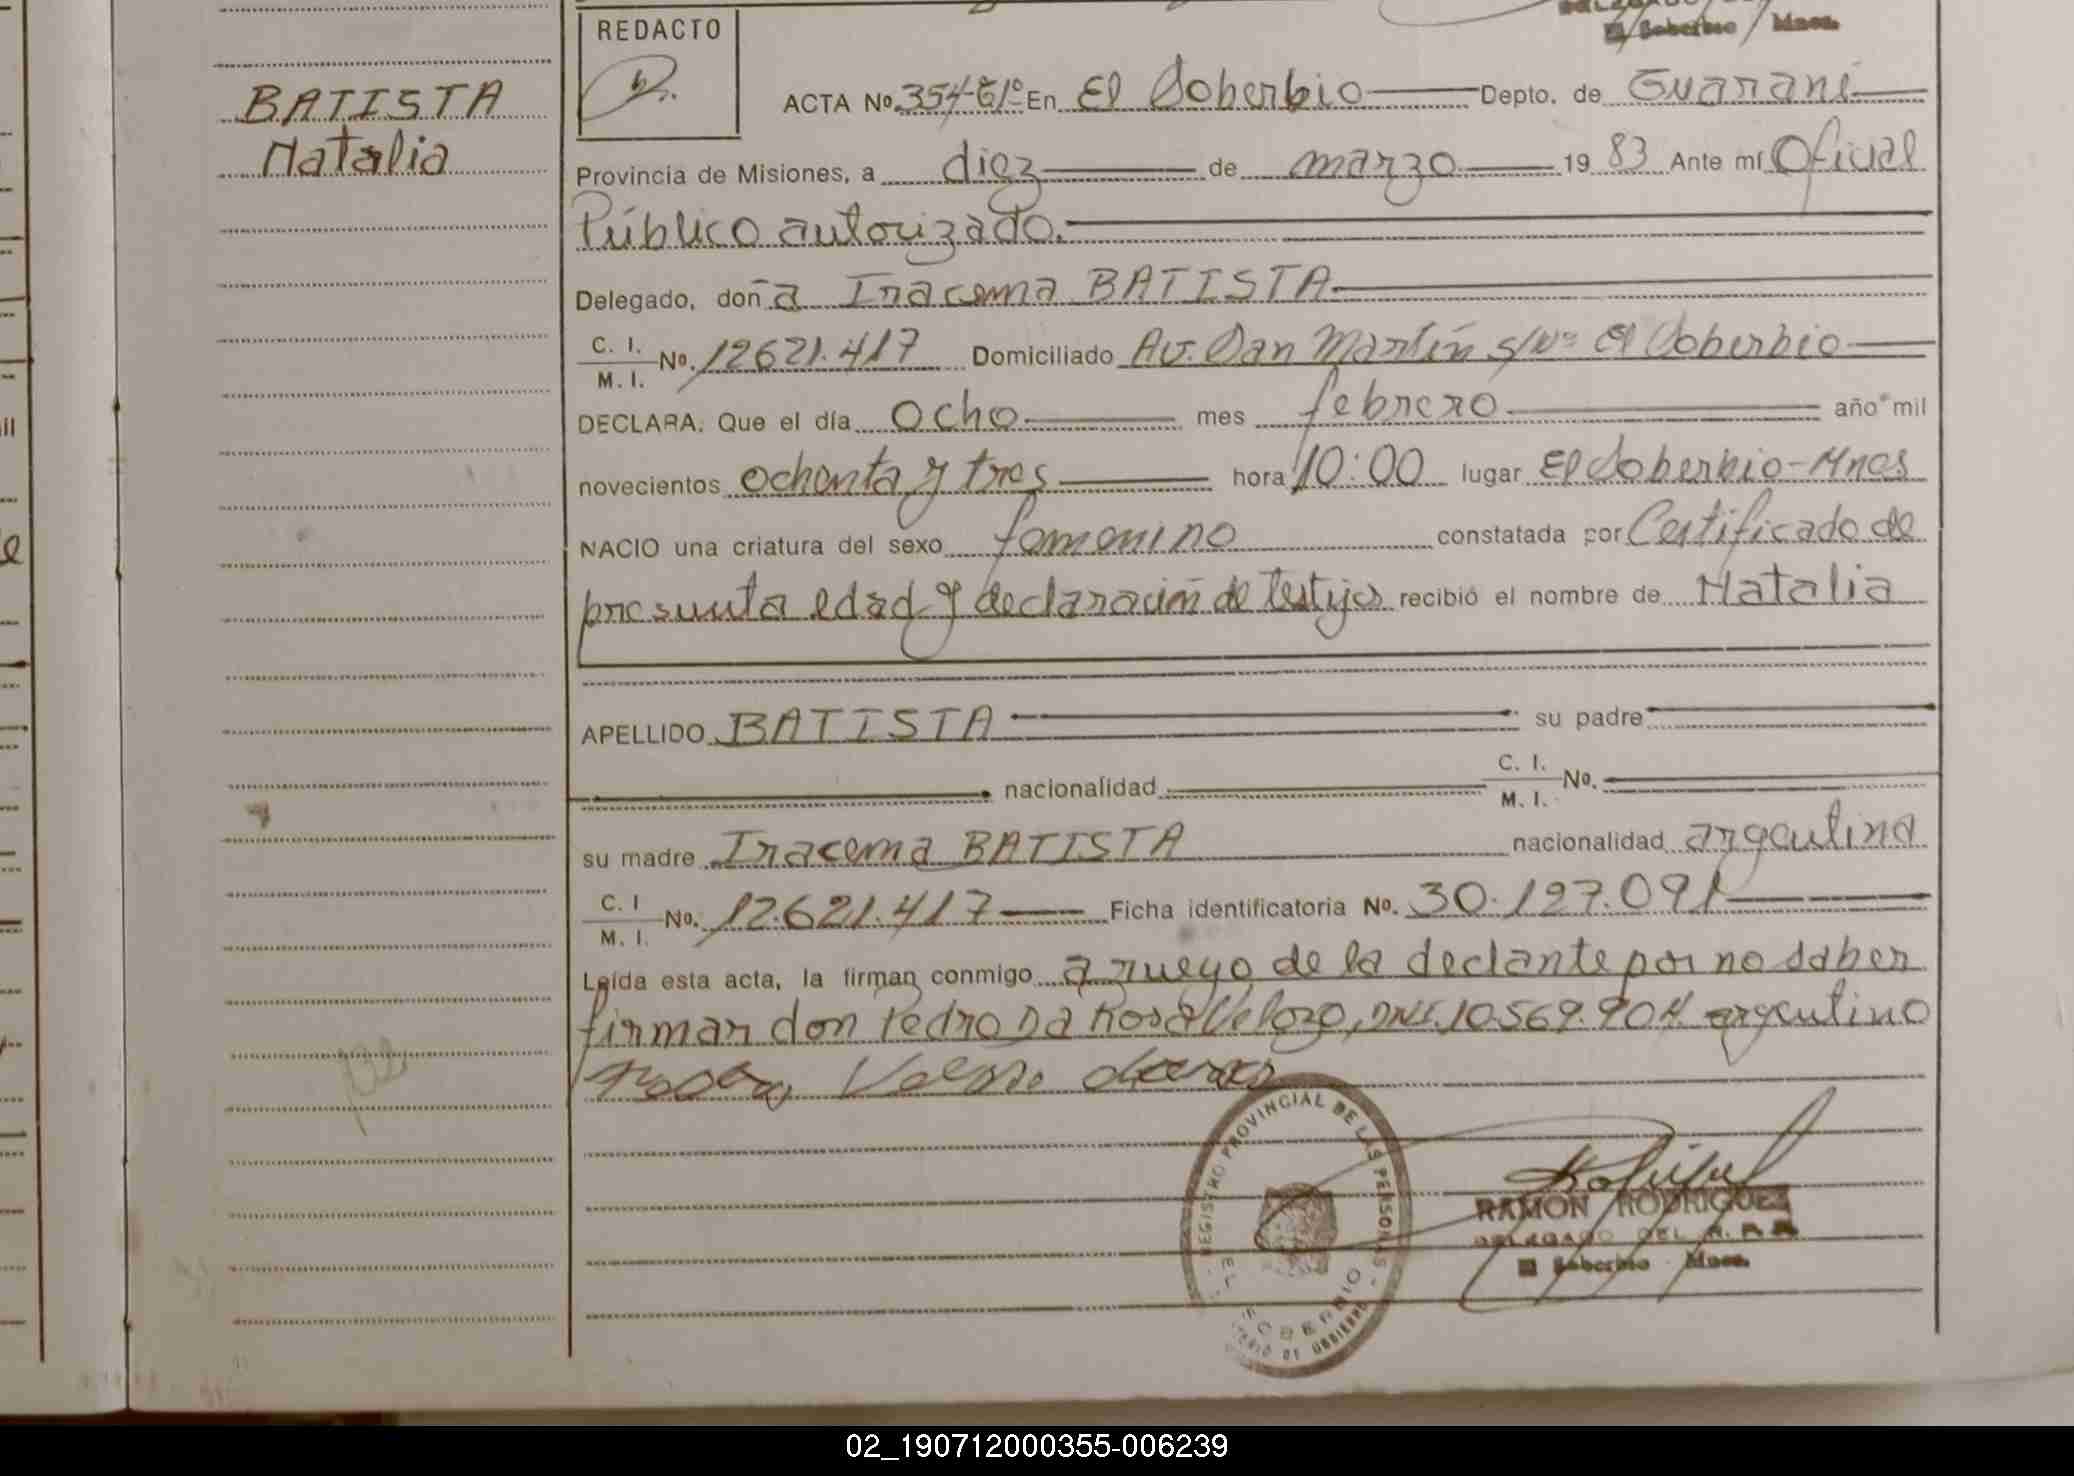 REDACTO
El Soberbio Mnes.
BATISTA
Natalia
ACTA No. 354-T1º En El Soberbio Depto. de Guaraní
Provincia de Misiones, a diez de marzo 19 83 Ante mí Oficial
Público autorizado.
Delegado, doña Iracema BATISTA
C. I. M. I. No. 12621.417 Domiciliado Av. San Martín s/Nº El Soberbio
DECLARA: Que el día ocho mes febrero año mil
novecientos ochenta y tres hora 10:00 lugar El Soberbio-Mnes
NACIO una criatura del sexo femenino constatada por Certificado de
presunta edad y declaración de testigos recibió el nombre de Natalia
APELLIDO BATISTA su padre
nacionalidad C. I. M. I. No.
su madre Iracema BATISTA nacionalidad argentina
C. I M. I. No. 12.621.417 Ficha identificatoria No. 30.127.091
Leída esta acta, la firman conmigo a ruego de la declante por no saber
firmar don Pedro Da Rosa Velozo, DNI. 10.569.904 argentino
REGISTRO PROVINCIAL DE LAS PERSONAS
EL SOBERBIO
RAMON RODRIGUEZ
DELEGADO DEL R.P.P.
El Soberbio - Mnes.
02_190712000355-006239